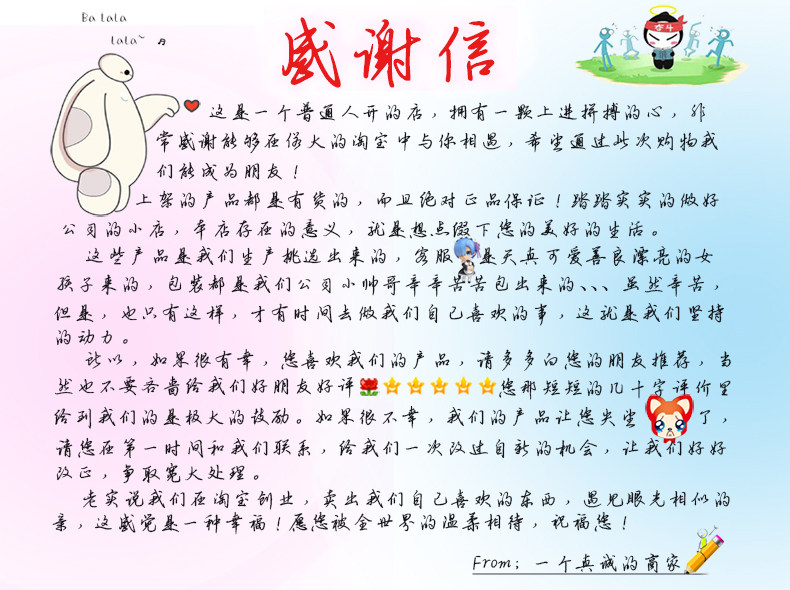 Ba LaLa
LaLa~
感谢信
奋斗
这是一个普通人开的店，拥有一颗上进拼搏的心，非
常感谢能够在偌大的淘宝中与你相遇，希望通过此次购物我
们能成为朋友！
上架的产品都是有货的，而且绝对正品保证！踏踏实实的做好
公司的小店，本店存在的意义，就是想点缀下您的美好的生活。
这些产品是我们生产挑选出来的，客服是天真可爱善良漂亮的女
孩子来的，包装都是我们公司小帅哥辛辛苦苦包出来的、、、虽然辛苦，
但是，也只有这样，才有时间去做我们自己喜欢的事，这就是我们坚持
的动力。
所以，如果很有幸，您喜欢我们的产品，请多多向您的朋友推荐，当
然也不要吝啬给我们好朋友好评您那短短的几十字评价里
给到我们的是极大的鼓励。如果很不幸，我们的产品让您失望了，
请您在第一时间和我们联系，给我们一次改过自新的机会，让我们好好
改正，争取宽大处理。
老实说我们在淘宝创业，卖出我们自己喜欢的东西，遇见眼光相似的
亲，这感觉是一种幸福！愿您被全世界的温柔相待，祝福您！
From：一个真诚的商家